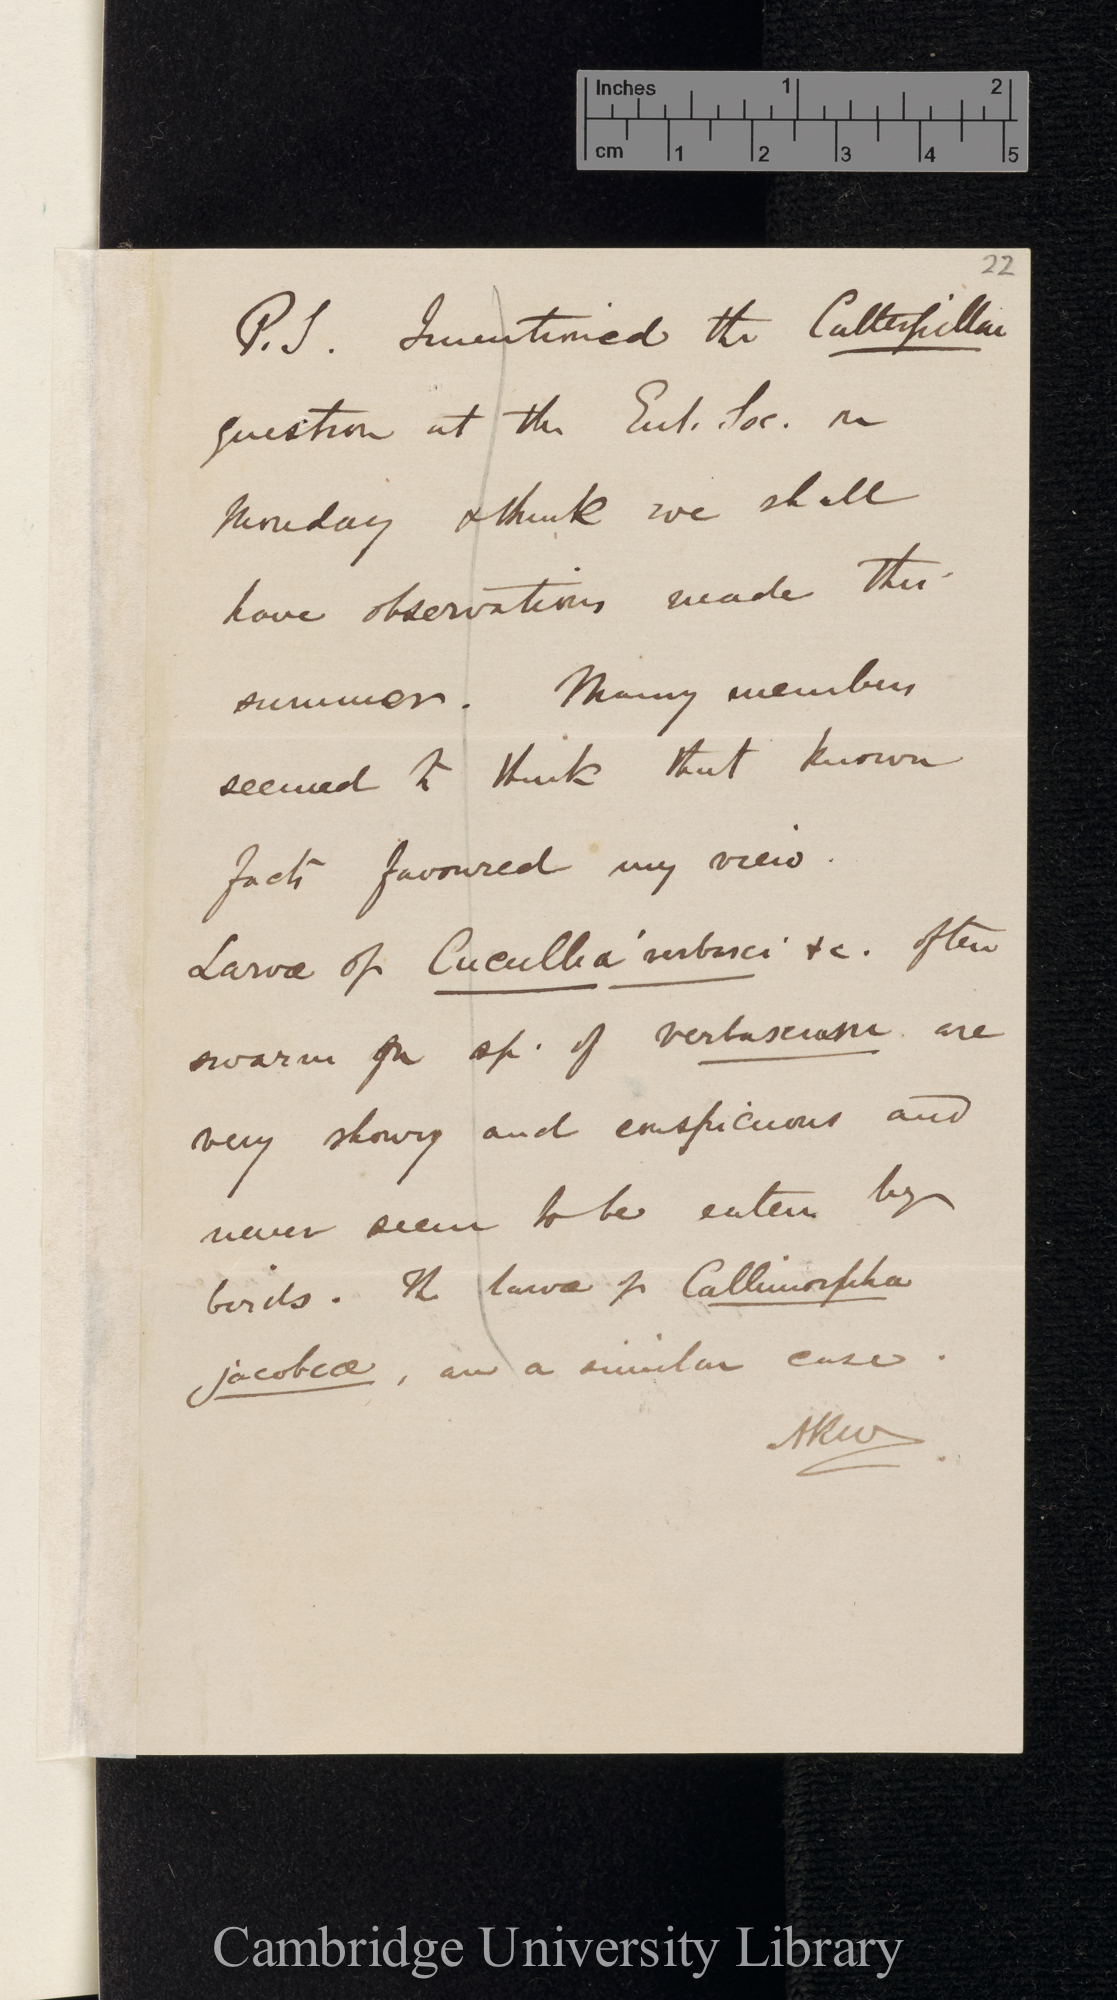 Inches 1 2
cm 1 2 3 4 5
22
P.S. I mentioned the Catterpillar
question at the Ent. Soc. on
Monday & think we shall
have observations made this
summer. Many members
seemed to think that known
facts favoured my view.
Larvæ of Cucullia verbasci &c. often
swarm on sp. of verbascum are
very showy and conspicuous and
never seem to be eaten by
birds. The larvæ of Callimorpha
jacobeæ, are a similar case.
ARW.
Cambridge University Library